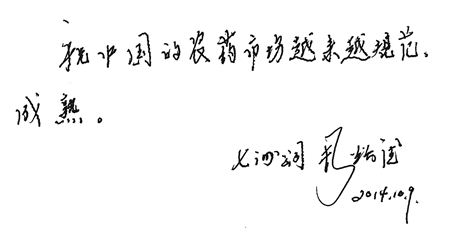 祝中国的农药市场越来越规范、
成熟。
七洲公司
2014.10.9.